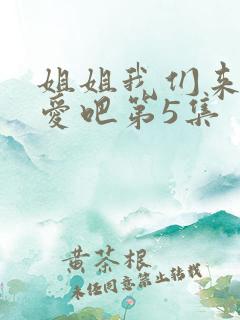 姐姐我们来
爱吧第5集
黄茶根
未经同意禁止转载